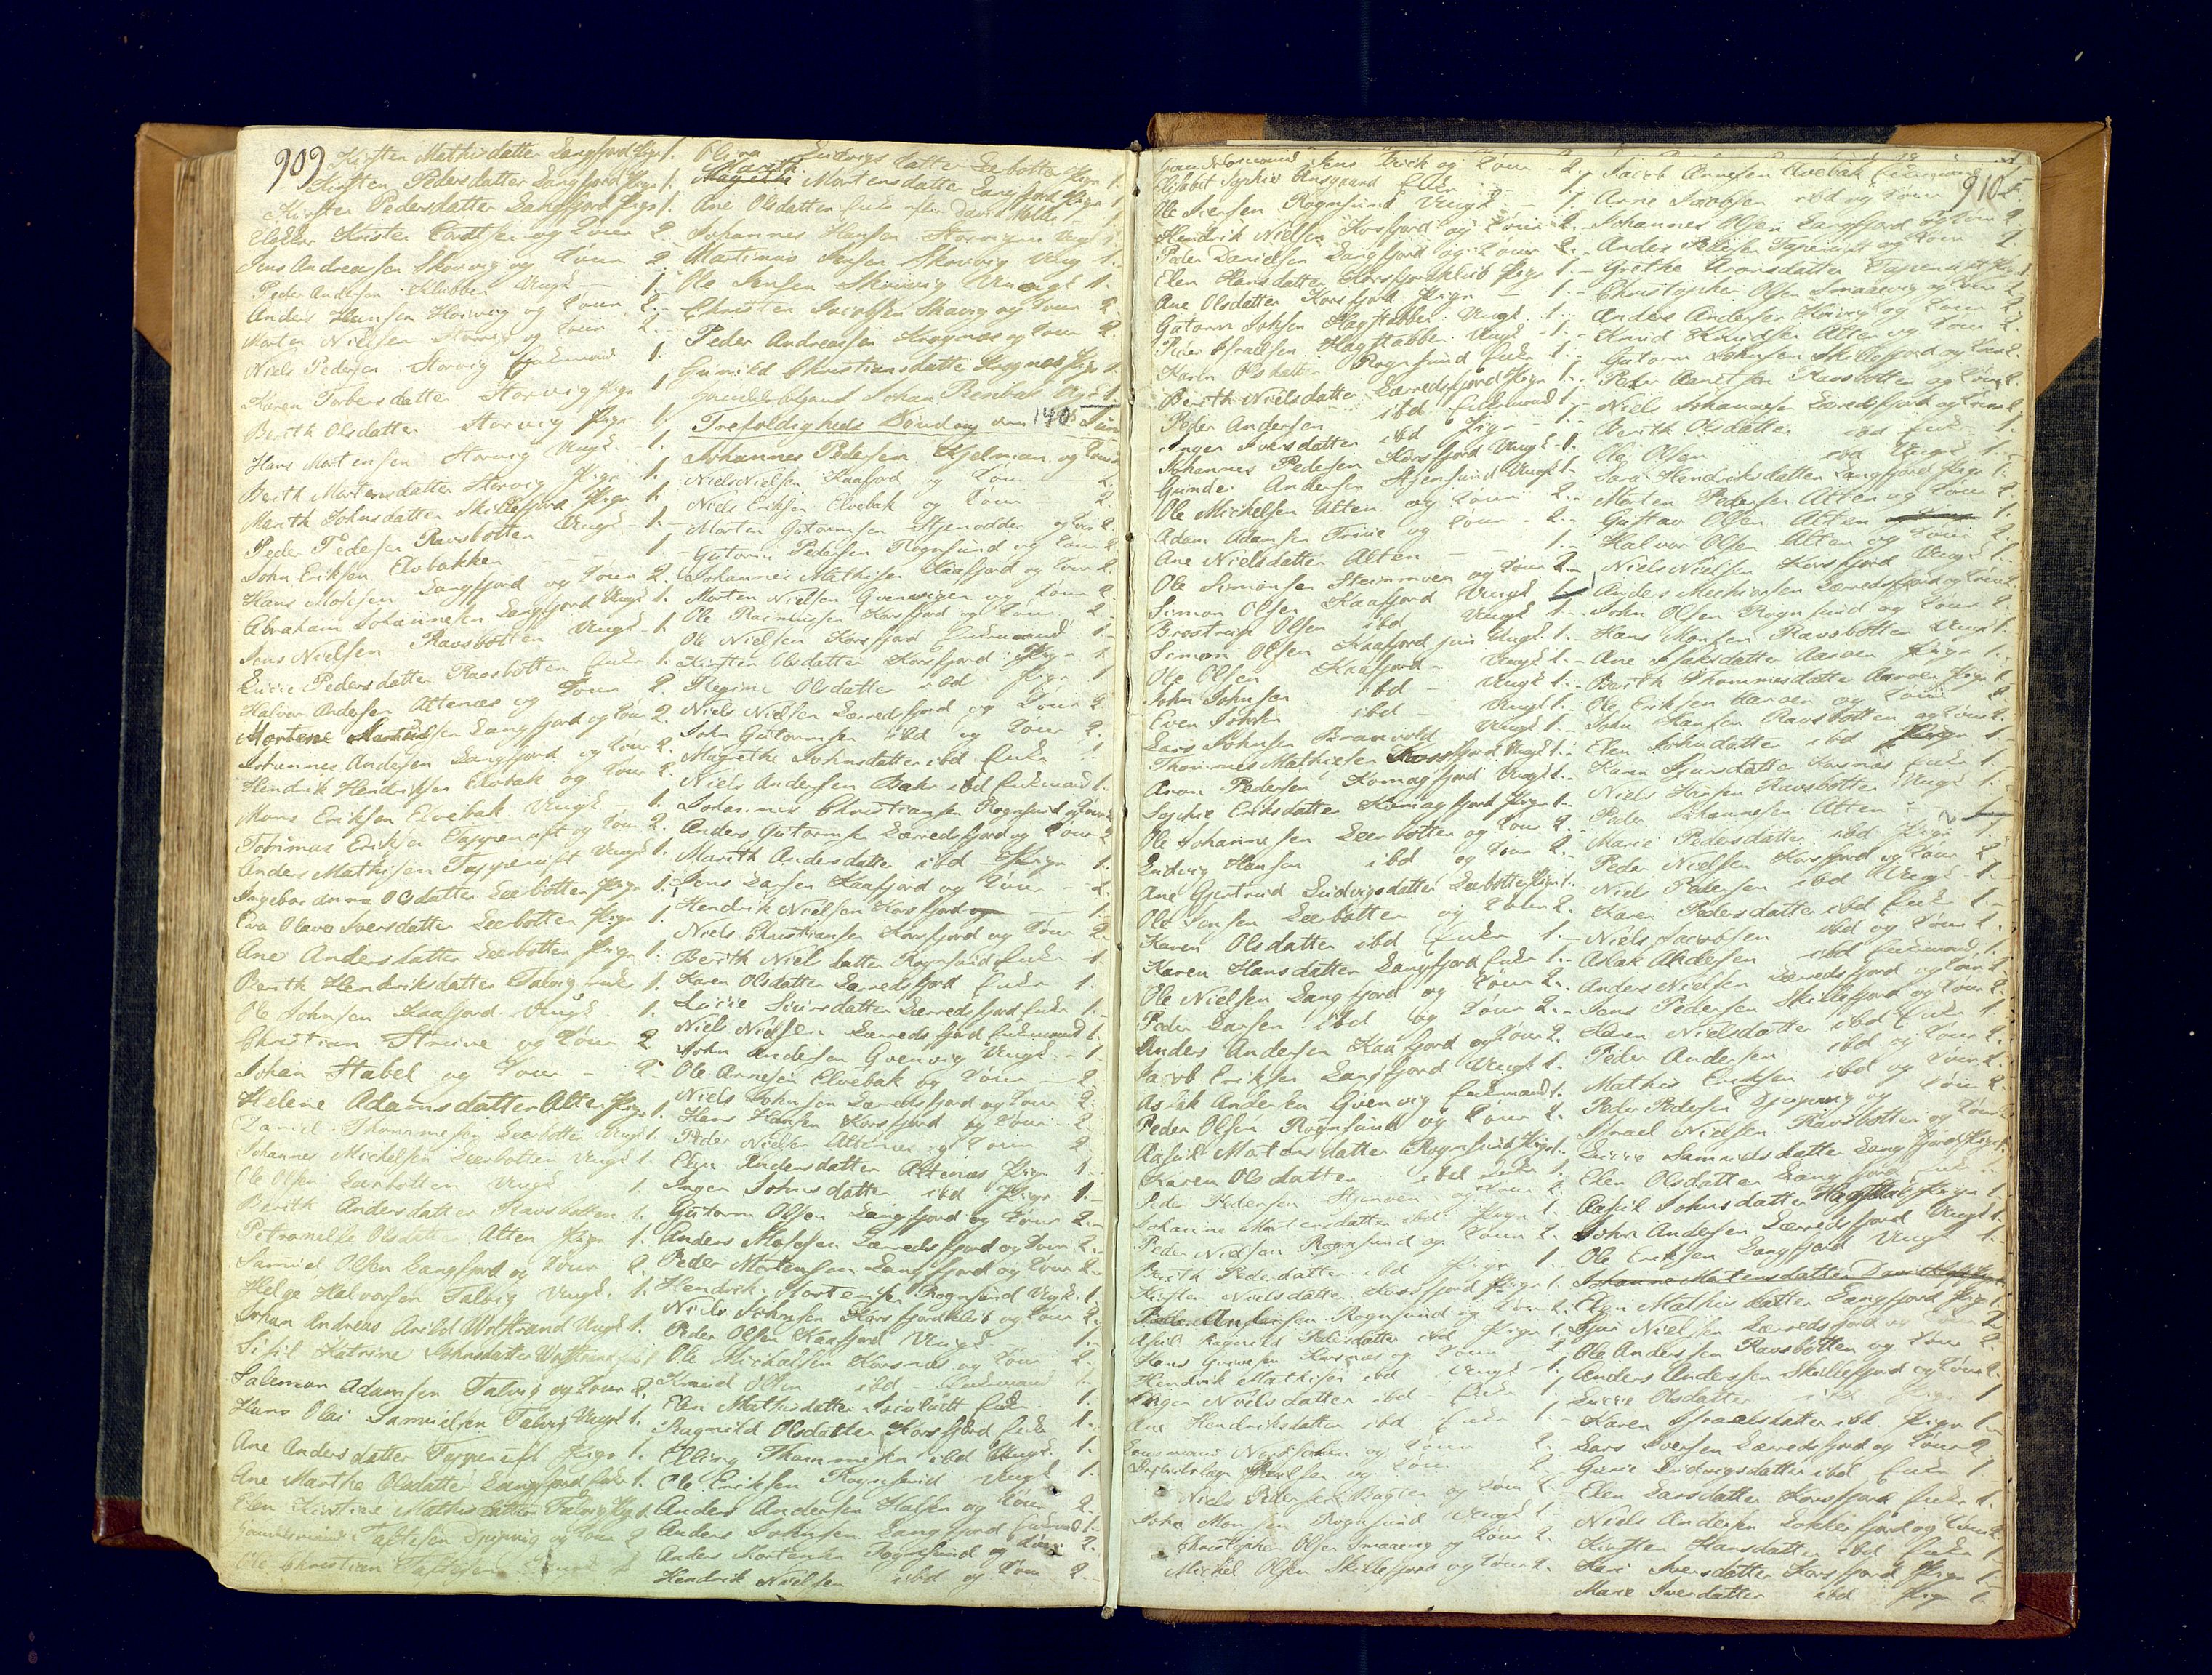 909
Kirsten Mathisdatter Langfjord Pige 1.
Kirsten Pedersdatter Langfjord Pige 1.
Kirsten Pedersdatter Langfjord Pige 1.
Klokker Kristen og Kone 2.
Jens Andreassen Skovvig og Kone 2
Peder Andersen Klubben Ungk 1.
Anders Hansen og Kone 2.
Morten Nielsen Storvig og Kone 2.
Niels Pedersen Storvig Enkemand 1.
Karen Torbersdatter Storvig Pige 1
Berith Olsdatter Storvig Pige 1.
Hans Mortensen Storvig Ungk. 1.
Berith Mortensdatter Storvig Pige 1.
Marith Johnsdatter Skillefjord Pige 1.
Peder Pedersen Ravsbotten Ungk 1.
John Eriksen Elvebakken 1.
Hans Monsen Langfjord og Kone 2.
Abraham Johannesen Langfjord Ungk 1.
Jens Nielsen Ravsbotten Ungk 1.
Lucie Pedersdatter Ravsbotten Enke 1.
Halvor Andersen Altenæs og Kone 2.
Langfjord og Kone 2.
Johannes Andersen Langfjord og Kone 2.
Hendrik Hendriksen Elvebak og Kone 2.
Mons Eriksen Elvebak Ungk 1.
Tommas Eriksen Tappeluft og Kone 2.
Anders Mathisen Tappeluft Ungk 1.
Ingebor Anna Olsdatter Leerbotten Pige 1.
Eva Olava Iversdatter Leerbotten Pige 1.
Ane Andersdatter Leerbotten Pige 1.
Berith Hendriksdatter Talvig Enke 1.
Ole Johnsen Kaafjord Ungk 1.
Christian og Kone 2
Johan Stabel og Kone 2
Helene Adamsdatter Alten Pige 1.
Daniel Thommesen Leerbotten Ungk 1.
Johannes Michelsen Leerbotten Ungk 1.
Ole Olsen Leerbotten Ungk 1.
Berith Andersdatter Ravsbotten 1.
Petronelle Olsdatter Alten Pige 1.
Samuel Olsen Langfjord og Kone 2.
Helge Halvorsen Talvig Ungk. 1.
Johan Andreas Arild Ungk 1.
Sisil Katrine Johnsdatter
Salemon Adamsen Talvig og Kone 2.
Hans Olai Samuelsen Talvig Ungk 1.
Ane Andersdatter Tappeluft Pige 1.
Ane Marthe Olsdatter Langfjord Enke 1.
Elen Kirstine Mathisdatter Talvig Pige 1.
og Kone 2
Ole Christian
Olina Ludvigsdatter Leerbotten Pige 1.
Marith Mortensdatter Langfjord Pige 1
Ane Olsdatter Enke efter David 1
Johannes Hansen Storvigen Ungk 1
Martinus Jensen Skovvig Ungk 1.
Ole Jensen Skovvig Ungk 1.
Christen Jacobsen Skovvig og Kone 2.
Peder Andreasen Krognæs og Kone 2.
Gunild Christiansdatter Krognæs Pige 1
Johan 1
Trefoldigheds Søndag den Juni
Johannes Pedersen Kjelman og Kone
Niels Nielsen Kaafjord og Kone 2.
Niels Eriksen Elvebak og Kone 2.
Morten Gutormsen Stjernodden og Kone 2
Gutorm Pedersen Rognsund og Kone 2.
Johannes Mathisen Kaafjord og Kone 2.
Morten Nielsen Qvenvigen og Kone 2
Ole Rasmussen Korsfjord og Kone 2
Ole Nielsen Korsfjord Enkemand 1
Kirsten Olsdatter Korsfjord Pige 1
Regine Olsdatter ibd Pige 1
Niels Nielsen Lerredsfjord og Kone 2
John Gutormsen ibd og Kone 2.
Magrethe Johnsdatter ibd Enke 1
Niels Andersen Bakn ibd Enkemand 1.
Johannes Christiansen Rognsund og Kone 2
Anders Gutormsen Lerredsfjord og Kone 2
Marith Andersdatter ibd Pige 1.
Jens Larsen Kaafjord og Kone 2.
Hendrik Nielsen Korsfjord 1.
Niels Christiansen Korsfjord og Kone 2.
Berith Nielsdatter Rognsund Enke 1.
Karen Olsdatter Lerredsfjord Enke 1.
Lucie Siversdatter Lerredsfjord Enke 1.
Niels Nielsen Lerredsfjord Enkemand 1.
John Andersen Qvenvig Ungk 1
Ole Arnesen Elvebak og Kone 2.
Niels Johnsen Lerredsfjord og Kone 2.
Hans Hansen Korsfjord og Kone 2
Peder Nielsen Altenæs og Kone 2
Elen Andersdatter Altenæs Pige 1
Inger Johnsdatter ibd Pige 1.
Gutorm Olsen Langfjord og Kone 2.
Anders Mosesen Lerredsfjord og Kone 2.
Peder Mortensen Langfjord og Kone 2.
Hendrik Mortensen Rognsund Ungk. 1
Niels Johnsen Korsfjordklub og Kone 2.
Peder Olsen Kaafjord Ungk 1.
Ole Michelsen Korsnæs og Kone 2
Knud Olsen ibd Enkemand 1.
Elen Mathisdatter Enke 1.
Ragnild Olsdatter Korsfjord Enke 1.
Elling Thommesen ibd Ungk. 1.
Ole Eriksen Rognsund Ungk 1.
Anders Andersen og Kone 2.
Anders Johnsen Langfjord Enkemand 1.
Anders Mortensen Rognsund og Kone 2.
Hendrik Nielsen ibd og Kone 2.
910
Jens og Kone 2.
Elisabet Sophie Enke 1.
Ole Iversen Rognsund Ungk 1.
Hendrik Nielsen Korsfjord og Kone 2.
Peder Danielsen Langfjord og Kone 2.
Elen Hansdatter Korsfjordklub Pige 1.
Ane Olsdatter Korsfjord Pige 1.
Gutorm Johnsen Hagstabben Ungk. 1
Peder Israelsen Hagstabben Ungk 1.
Karen Olsdatter Rognsund Enke 1.
Berith Nielsdatter Lerredsfjord Pige 1.
Peder Andersen ibd Enkemand 1.
Inger Iversdatter ibd Pige 1.
Johannes Pedersen Korsfjord Ungk 1.
Gunder Andersen Stjernsund Ungk 1.
Ole Michelsen Alten og Kone 2.
Adam Adamsen og Kone 2.
Ane Nielsdatter Alten 1.
Ole Simonsen og Kone 2.
Simon Olsen Kaafjord Ungk 1.
Brostrup Olsen ibd Ungk 1.
Simon Olsen Kaafjord jun Ungk 1.
Ole Olsen Kaafjord Ungk 1.
John Johnsen ibd Ungk 1.
Even Johnsen ibd Ungk 1.
Lars Johnsen Ungk 1.
Thommes Mathisen Korsfjord Ungk 1.
Aron Pedersen Komagfjord Ungk 1.
Sophie Eriksdatter Komagfjord Pige 1.
Ole Johannesen Leerbotten og Kone 2.
Ludvig Hansen ibd og Kone 2.
Ane Gjertrud Ludvigsdatter Leerbotten Pige 1.
Ole Jonsen Leerbotten og Kone 2.
Karen Olsdatter ibd Enke 1.
Karen Hansdatter Langfjord Enke 1.
Ole Nielsen Langfjord og Kone 2.
Peder Larsen ibd og Kone 2.
Anders Andersen Kaafjord og Kone 2.
Jacob Eriksen Langfjord Ungk 1.
Aslak Andersen Qvenvig Enkemand 1.
Peder Olsen Rognsund og Kone 2.
Mortensdatter Rognsund Pige 1.
Karen Olsdatter ibd Enke 1.
Peder Pedersen og Kone 2.
Johanne Mortensdatter ibd Pige 1.
Peder Nielsen Rognsund og Kone 2.
Berith Pedersdatter ibd Pige 1.
Kirsten Nielsdatter Korsfjord Pige 1.
Peder Andersen Rognsund og Kone 2.
Ragnild Pedersdatter ibd Pige 1.
Hans Korsnæs og Kone 2
Hendrik Mathisen ibd Ungk 1.
Inger Nielsdatter ibd Enke 1
Ane Hendriksdatter ibd Enke 1
og Kone 2.
og Kone 2
Niels Pedersen og Kone 2
John Monsen Rognsund Ungk 1
Christopher Olsen Smaavig og Kone 2.
Michel Olsen Skillefjord og Kone 2.
Jacob Annesen Elvebak Enkemand
Arne Jacobsen ibd og Kone 2.
Johannes Olsen Langfjord og Kone 2
Anders Tappeluft og Kone 2
Grethe Aronsdatter Tappeluft Pige 1.
Christopher Olsen Smaavig og Kone 2
Anders Andersen og Kone 2
Knud Knudsen Alten og Kone 2.
Gutorm Johnsen Skillefjord og Kone 2.
Peder Ravsbotten og Kone 2.
Niels Johannesen Lerredsfjord og Kone 2
Berith Olsdatter ibd Enke 1.
Ole Olsen ibd Ungk 1
Sara Hendriksdatter Langfjord Pige 1
Morten Pedersen Alten og Kone 2.
Gustav Olsen Alten 1.
Halvor Olsen Alten og Kone 2.
Niels Nielsen Korsfjord Ungk 1.
Anders Lerredsfjord og Kone 2.
John Olsen Rognsund og Kone 2.
Hans Monsen Ravsbotten Ungk 1.
Ane Isaksdatter Aarøen Pige 1.
Berith Thommesdatter Aarøen Pige 1.
Ole Eriksen Aarøen og Kone 2
John Hansen Ravsbotten og Kone 2.
Elen Johnsdatter ibd Pige 1
Karen Korsnæs Enke 1.
Niels Hansen Ravsbotten Ungk 1.
Peder Johannesen Alten
Marie Pedersdatter ibd Pige 1.
Peder Nielsen Korsfjord og Kone 2
Niels Pedersen ibd Ungk 1.
Karen Pedersdatter ibd Enke 1.
Niels Jacobsen ibd og Kone 2.
Aslak Andersen ibd Enkemand 1.
Anders Nielsen Lerredsfjord og Kone 2.
Jens Pedersen Skillefjord og Kone 2.
Karen Nielsdatter ibd Enke 1
Peder Andersen ibd og Kone 2.
Mathis Eriksen ibd og Kone 2.
Peder Pedersen og Kone 2.
Israel Nielsen Ravsbotten og Kone 2
Lucie Samuelsdatter Langfjord Pige 1.
Elen Olsdatter Langfjord Enke 1.
Johnsdatter Pige 1.
John Andersen Lerredsfjord Ungk 1.
Ole Eriksen Langfjord Ungk 1.
Johanne Mortensdatter
Elen Mathisdatter Langfjord Pige 1.
Nielsen Lerredsfjord og Kone 2
Ole Anderssen Ravsbotten og Kone 2.
Anders Anderssen Skillefjord og Kone 2.
Lucie Olsdatter ibd Pige 1
Karen Israelsdatter ibd. Pige 1.
Lars Iversen Lerredsfjord og Kone 2
Ludvigsdatter ibd Enke 1
Elen Larsdatter Korsfjord Enke 1.
Niels Andersen og Kone 2.
Kirsten Hansdatter ibd Enke 1
Kari Iversdatter Korsfjord Pige 1.
Marie Iverdatter ibd Pige 1.